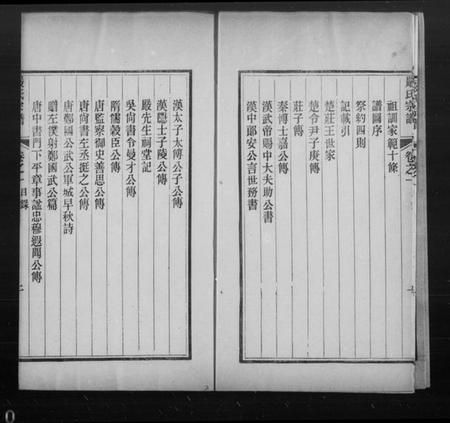 嚴氏家譜 卷之一
祖訓家範十條
譜圖序
祭約四則
記載引
楚莊王世家
楚令尹子庚傳
莊子傳
秦博士嘉公傳
漢武帝賜中大夫助公書
漢中郎安公言世務書
漢太子太傅公子公傳
漢隱士子陵公傳
嚴先生祠堂記
吳尚書令曼才公傳
隋儒穀臣公傳
唐監察御史善思公傳
唐尚書左丞挺之公傳
唐鄭國公武公軍城早秋詩
贈左僕射鄭國武公篇
唐中書門下平章事謚忠穆遐聞公傳
卷之一 目錄